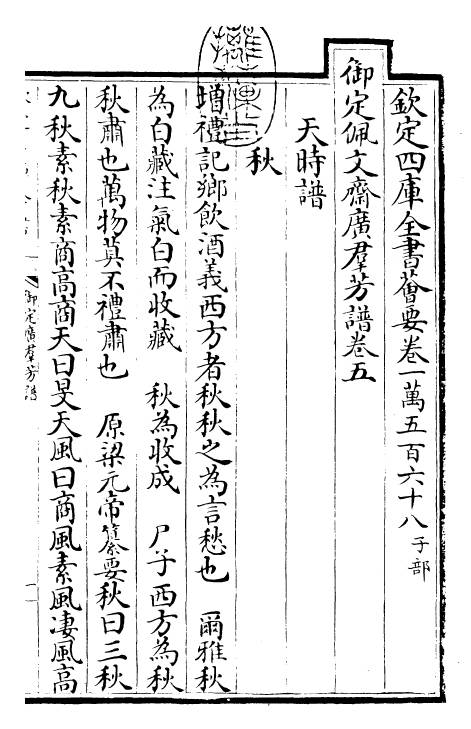 欽定四庫全書薈要卷一萬五百六十八 子部
御定佩文齋廣羣芳譜卷五
天時譜
秋
增禮記鄉飲酒義西方者秋秋之為言愁也 爾雅秋
為白藏注氣白而收藏 秋為收成 尸子西方為秋
秋肅也萬物莫不禮肅也 原梁元帝纂要秋曰三秋
九秋素秋素商高商天曰旻天風曰商風素風凄風高
御定廣羣芳譜